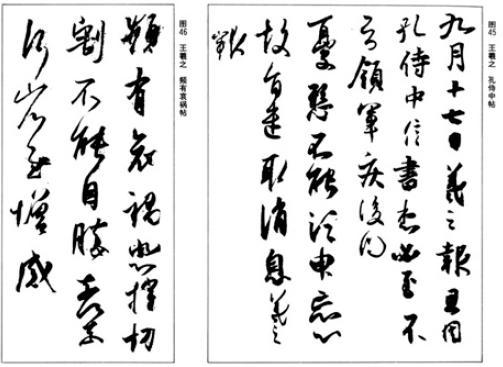 图45 王羲之 孔侍中帖
九月十七日羲之報且因
孔侍中信書想必至不
知領軍疾後問
憂懸不能須臾忘心
故旨遣取消息羲之
報
图46 王羲之 频有哀祸帖
頻有哀禍悲摧切
割不能自勝奈何
奈何省慰增感